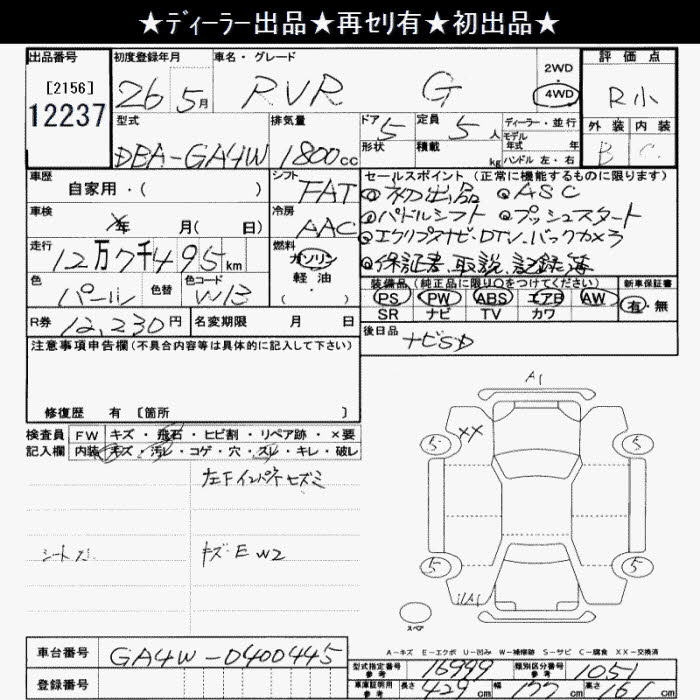 ★ディーラー出品★再セリ有★初出品★
出品番号 初度登録年月 車名・グレード 2WD 4WD 評価点
[2156]
12237
26 5月 RVR G R小
型式 排気量 ドア 定員 ディーラー・並行 外装 内装
DBA-GA4W 1800cc 5 5人 モデル年式 年 B C
形状 積載 kg ハンドル 左・右
車歴 シフト セールスポイント(正常に機能するものに限ります)
自家用・( ) FAT ◎初出品 ◎ASC
車検 年 月(日) 冷房 AAC ◎パドルシフト ◎プッシュスタート
走行 燃料 ◎エクリプスナビ・DTV・バックカメラ
12万7千495km ガソリン ◎保証書 取説 記録簿
色 色替 色コード 軽油 装備品(純正品に限り○をつけてください) 新車保証書
パール W13 (・) PS PW ABS エアB AW 有・無
SR ナビ TV カワ
R券 12,230円 名変期限 月 日 後日品
ナビSD
注意事項申告欄(不具合内容等は具体的に記入して下さい)
修復歴 有 [箇所 ]
A1
検査員 FW キズ・飛石・ヒビ割・リペア跡・×要
記入欄 内装 キズ・汚レ・コゲ・穴・スレ・キレ・破レ
XX
5 5
左Fインパネヒズミ
シートスレ キズ・E W2
5 5
スペア
A-キズ E-エクボ U-凹み W-補修跡 S-サビ C-腐食 XX-交換済
車台番号 GA4W-0400445
型式指定番号 参考 16999 類別区分番号 参考 1051
登録番号
車庫証明用 参考 長さ 429cm 幅 177cm 高さ 166cm